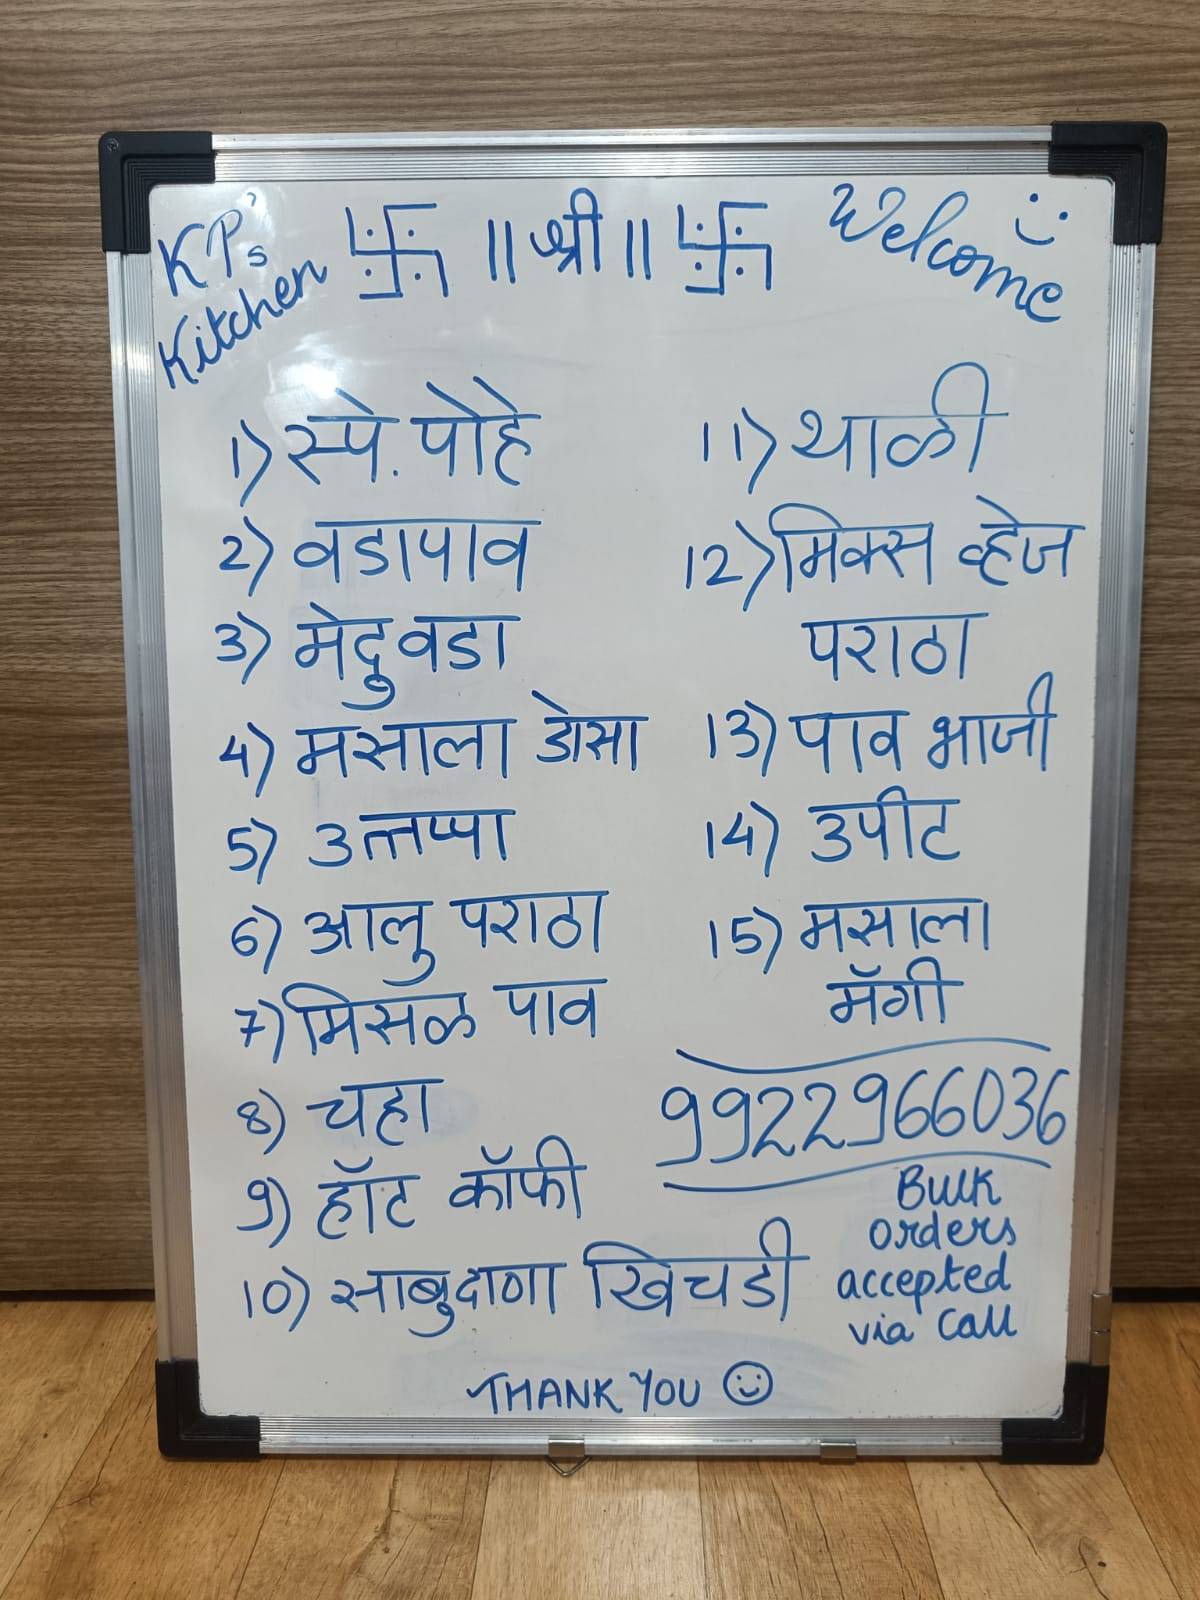 KP's
Kitchen
卐 || श्री || 卐
Welcome
1) स्पे. पोहे
2) वडापाव
3) मेदुवडा
4) मसाला डोसा
5) उत्तप्पा
6) आलु पराठा
7) मिसळ पाव
8) चहा
9) हॉट कॉफी
10) साबुदाणा खिचडी
11) थाळी
12) मिक्स व्हेज
पराठा
13) पाव भाजी
14) उपीट
15) मसाला
मॅगी
9922966036
Bulk
orders
accepted
via Call
THANK YOU ☺